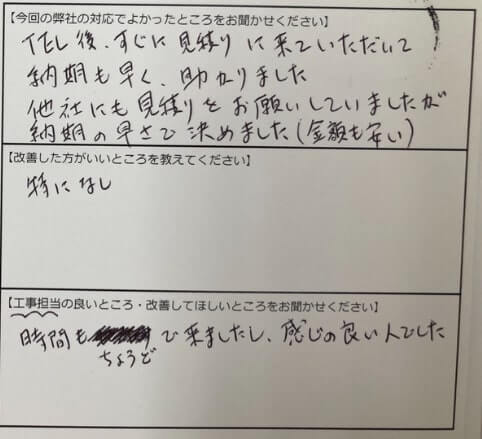 【今回の弊社の対応でよかったところをお聞かせください】
TEL後、すぐに見積りに来ていただいて
納期も早く、助かりました
他社にも見積りをお願いしていましたが
納期の早さで決めました(金額も安い)
【改善した方がいいところを教えてください】
特になし
【工事担当の良いところ・改善してほしいところをお聞かせください】
時間も で来ましたし、感じの良い人でした
ちょうど